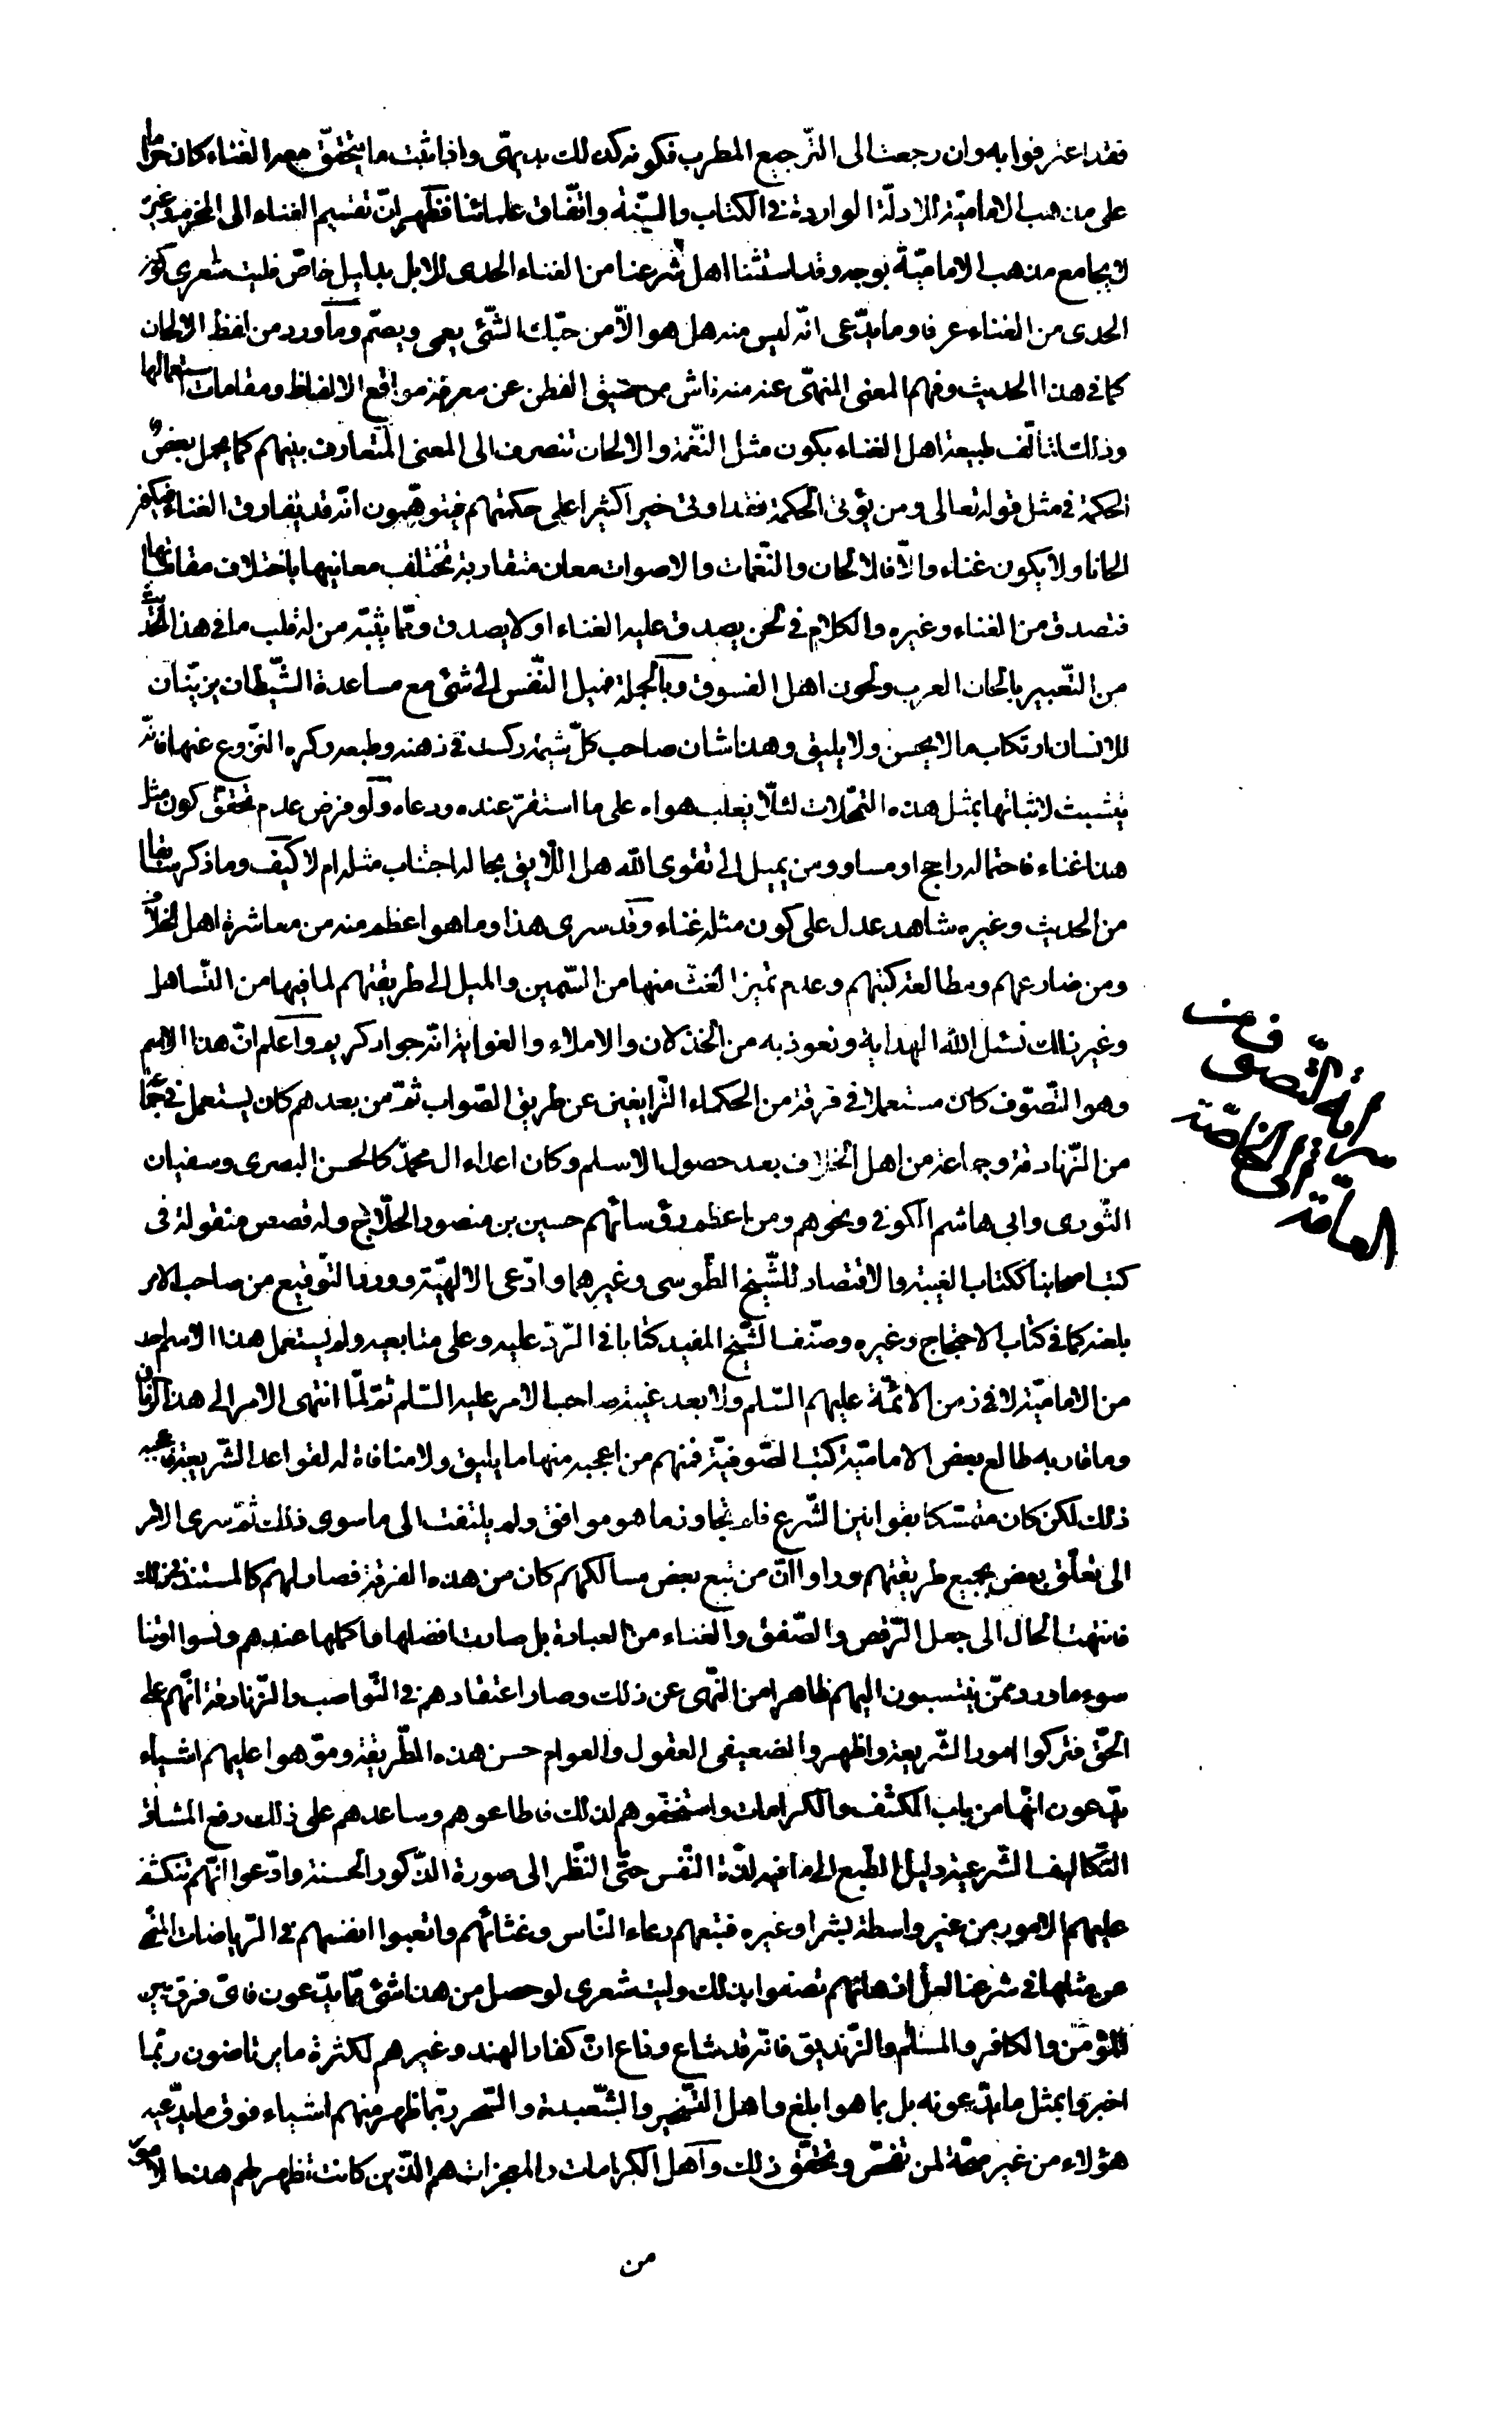 فقد اعترفوا به وان رجعت الى الترجيع المطرب فكونه كذلك بديهىّ واذا ثبت ما يتحقّق معه الغناء كان حراما
على مذهب الاماميّة للادلّة الواردة فى الكتاب والسّنّة واتّفاق علمائنا فظهر انّ تقسيم الغناء الى المحرم وغيره
لا يجامع مذهب الاماميّة بوجه وقد استثنا اهل شرعنا من الغناء الحدى للابل بدليل خاصّ فليت شعرى كون
الحدى من الغناء عرفا وما يدّعى انّه ليس منه هل هو الّا من حبّك الشّئ يعمى ويصمّ وما ورد من لفظ الالحان
كما فى هذا الحديث وفهم المعنى المنهىّ عنه منه ناش من ضيق الفطن عن معرفة مواقع الالفاظ ومقامات استعمالها
وذلك لتالّف طبيعة اهل الغناء بكون مثل النّغمة والالحان تنصرف الى المعنى المتعارف بينهم كما يحمل بعضٌ
الحكمة فى مثل قوله تعالى ومن يؤتى الحكمة فقد اوتى خيرا كثيرا على حكمتهم فيتوهّمون انّه قد يفارق الغناء فيكون
الحانا ولا يكون غناء والّا فالالحان والنّغمات والاصوات معان متقاربة تختلف معانيها باختلاف مقاماتها
فتصدق من الغناء وغيره والكلام فى لحن يصدق عليه الغناء او لا يصدق وممّا ينبّه من له قلب ما فى هذا الحديث
من التّعبير بالحان العرب ولحون اهل الفسوق وبالجملة فميل النّفس الى شئ مع مساعدة الشّيطان يزيّنان
للانسان ارتكاب ما لا يحسن ولا يليق وهذا شان صاحب كلّ شبهة ركدت فى ذهنه وطبعه وكره النزوع عنها فانّه
يتشبث لاثباتها بمثل هذه التمحّلات لئلّا يغلب هواه على ما استقرّ عنده ودعاه ولو فرض عدم تحقّق كون مثل
هذا غناء فاحتماله راجح او مساو ومن يميل الى تقوى الله هل اللّايق بحاله اجتناب مثله ام لا كيف وما ذكر سابقا
من الحديث وغيره شاهد عدل على كون مثله غناء وقد سرى هذا وما هو اعظم منه من معاشرة اهل الخلاف
ومن ضارعهم ومطالعة كتبهم وعدم تميز الغثّ منها من السّمين والميل الى طريقتهم لما فيها من التّساهل
وغير ذلك نسئل الله الهداية ونعوذ به من الخذلان والاملاء والغواية انّه جواد كريم واعلم انّ هذا الاسم
وهو التّصوّف كان مستعملا فى فرقة من الحكماء الزّايغين عن طريق الصّواب ثمّ من بعدهم كان يستعمل فى جماعة
من الزّنادقة وجماعة من اهل الخلاف بعد حصول الاسلام وكان اعداء ال محمّد كالحسن البصرى وسفيان
الثّورى وابى هاشم الكوفى ونحوهم ومن اعظم رؤسائهم حسين بن منصور الحلّاج وله قصص منقولة فى
كتب اصحابنا ككتاب الغيبة والاقتصاد للشّيخ الطّوسى وغيرهما وادّعى الالهيّة وورد التّوقيع من صاحب الامر
بلعنه كما فى كتاب الاحتجاج وغيره وصنّف الشّيخ المفيد كتابا فى الرّدّ عليه وعلى متابعيه ولم يستعمل هذا الاسم احد
من الاماميّة لا فى زمن الائمّة عليهم السّلم ولا بعد غيبة صاحب الامر عليه السّلم ثمّ لمّا انتهى الامر الى هذا الزمان
وما قاربه طالع بعض الاماميّة كتب الصّوفيّة فمنهم من اعجبه منها ما يليق ولا منافاة له لقواعد الشّريعة فاعجبه
ذلك لكن كان متمسّكا بقوانين الشّرع فلم يتجاوز ما هو موافق ولم يلتفت الى ما سوى ذلك ثمّ سرى الامر
الى تعلّق بعض بجميع طريقتهم وراوا انّ من تبع بعض مسالكهم كان من هذه الفرقة فصار لهم كالمستند فى ذلك
فانتهت الحال الى جعل الرّقص والصّفق والغناء من العبادة بل صارت افضلها واكملها عندهم ونسوا او تناسوا
ما ورد ممّن ينتسبون اليهم ظاهرا من النّهى عن ذلك وصار اعتقادهم فى النّواصب والزّنادقة انّهم على
الحقّ فتركوا امور الشّريعة واظهروا لضعيفى العقول والعوام حسن هذه الطّريقة وموّهوا عليهم اشياء
يدّعون انّها من باب الكشف والكرامات واستخفّوهم لذلك فاطاعوهم وساعدهم على ذلك رفع المشاق
التّكاليف الشّرعية وميل الطّبع الى ما فيه لذّة النّفس حتّى النّظر الى صورة الذّكور الحسنة وادّعوا انّهم تنكشف
عليهم الامور من غير واسطة بشر او غيره فتبعهم رعاء النّاس وغثائهم واتعبوا انفسهم فى الرّياضات المنهى
عن مثلها فى شرعنا لعلّ اذهانهم تصفوا بذلك وليت شعرى لو حصل من هذا شئ ممّا يدّعون فاىّ فرق بين
المؤمن والكافر والمسلم والزّنديق فانّه قد شاع وذاع انّ كفار الهند وغيرهم لكثرة ما يرتاضون ربّما
اخبروا بمثل ما يدّعونه بل بما هو ابلغ واهل التّسخير والشّعبدة والسّحر ربّما ظهر منهم اشياء فوق ما يدّعيه
هؤلاء من غير صحّة لمن تفحّص وتحقّق ذلك واهل الكرامات والمعجزات هم الّذين كانت تظهر لهم هذه الامور
من
سراية التّصوّف من
العامّة الى الخاصّة